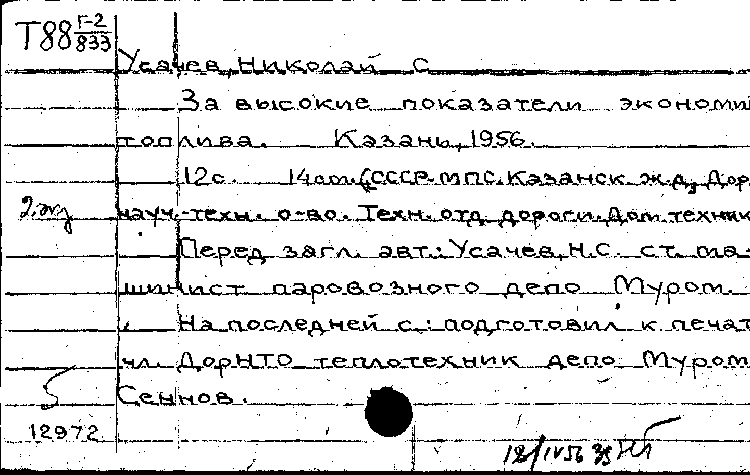 Т88 Г-2/833
Усачев, Николай С
За высокие показатели экономи
топлива. Казань, 1956.
12с. 14см. (СССР. МПС. Казанск. ж.д., Дор
науч.-техн. о-во. Техн. отд. дороги. Дом техник
2 экз
Перед загл. авт.: Усачев, Н.С. ст. ма-
шинист паровозного депо Муром.
На последней с.: подготовил к печат
чл. ДорНТО теплотехник депо Муром
Сеннов.
5
12972